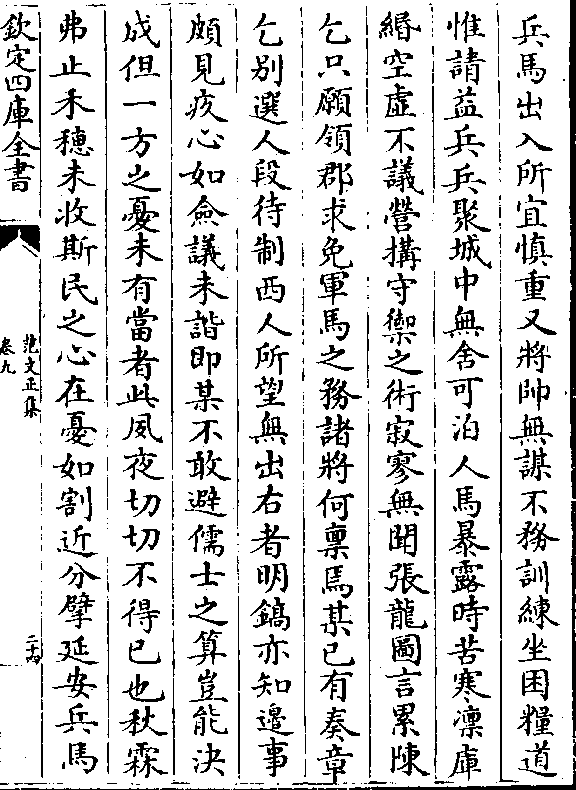 兵馬出入所宜慎重又將帥無謀不務訓練坐困糧道
惟請益兵兵聚城中無舍可泊人馬暴露時苦寒凜庫
緡空虛不議營搆守禦之術寂寥無聞張龍圖言累陳
乞只願領郡求免軍馬之務諸將何稟焉某已有奏章
乞别選人段待制西人所望無出右者明鎬亦知邊事
頗見疚心如僉議未諧即某不敢避儒士之算豈能決
成但一方之憂未有當者此夙夜切切不得已也秋霖
弗止禾穗未收斯民之心在憂如割近分擘延安兵馬
欽定四庫全書
范文正集
卷九
二十四